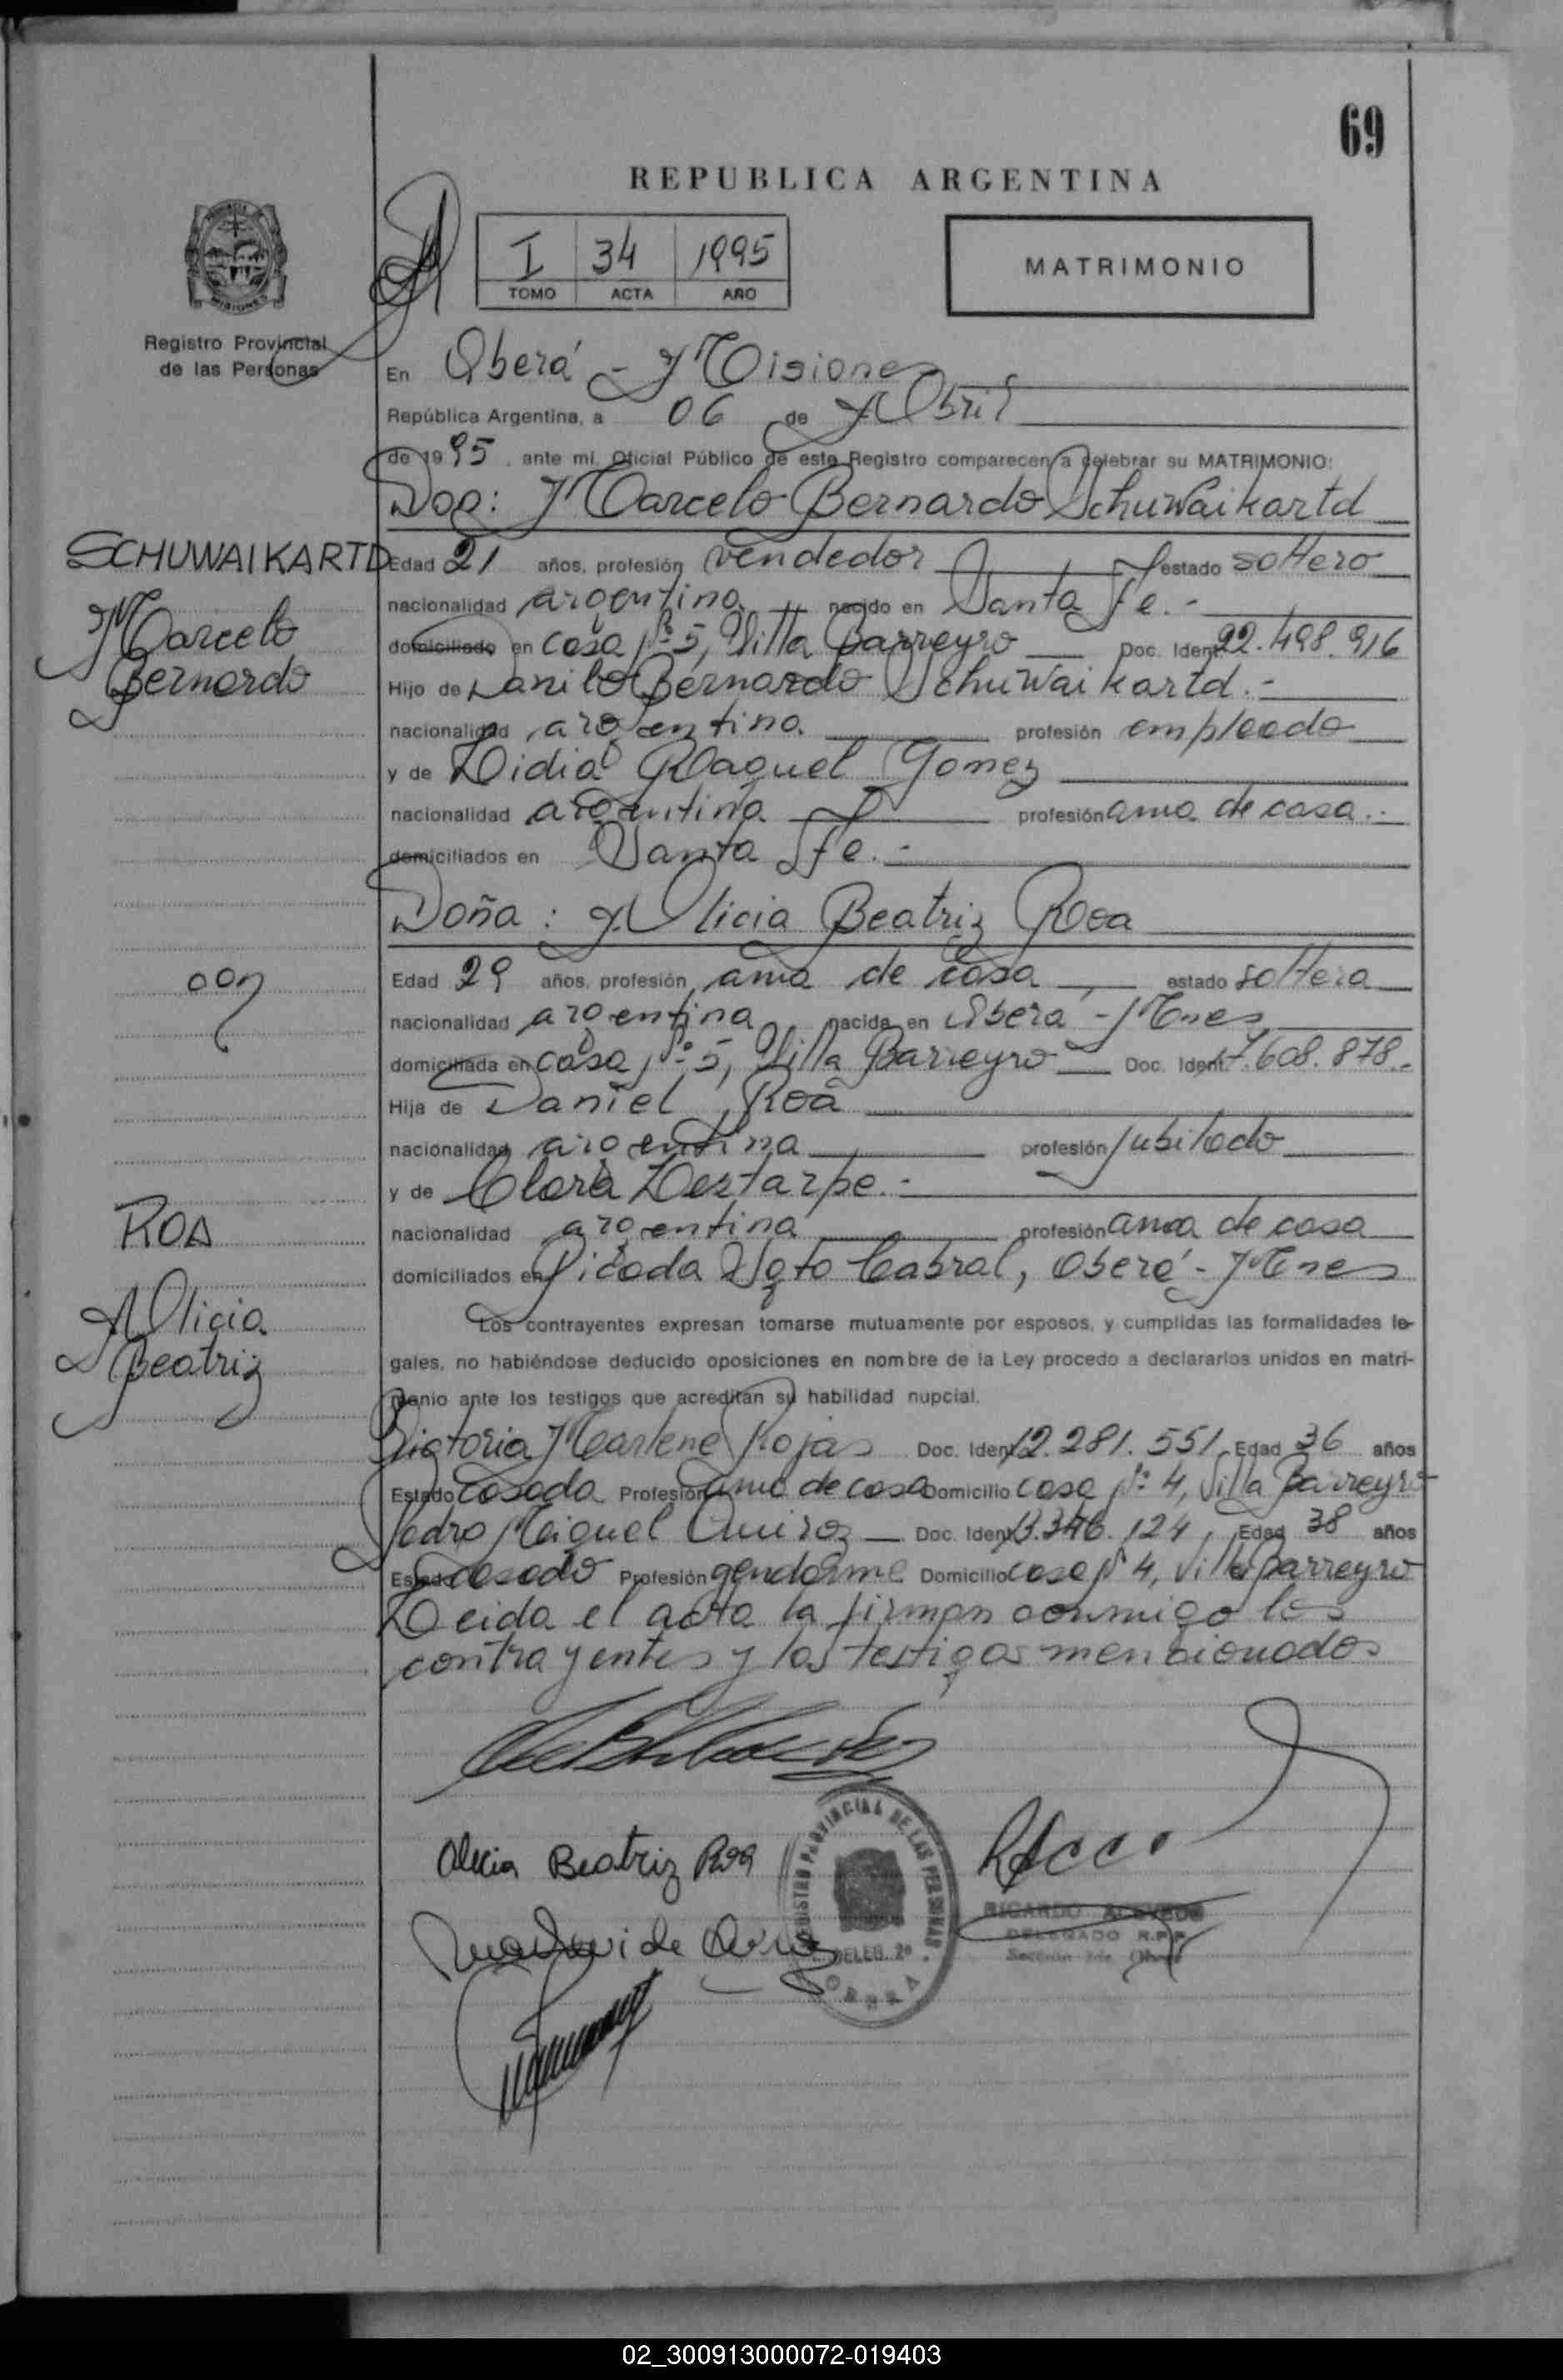 69
REPUBLICA ARGENTINA
I 34 1995
TOMO ACTA AÑO
MATRIMONIO
Registro Provincial
de las Personas
En Oberá - Misiones
República Argentina, a 06 de Abril
de 1995, ante mi, Oficial Público de este Registro comparecen a celebrar su MATRIMONIO:
Don: Marcelo Bernardo Schuwaikartd
SCHUWAIKARTD
Marcelo
Bernardo
Edad 21 años, profesión vendedor estado soltero
nacionalidad argentina nacido en Santa Fe.-
domiciliado en casa Nº 5, Villa Barreyro Doc. Ident. 22.498.916
Hijo de Danilo Bernardo Schuwaikartd.-
nacionalidad argentina profesión empleado
y de Lidia Raquel Gomez
nacionalidad argentina profesión ama de casa.-
domiciliados en Santa Fe.-
Doña: Alicia Beatriz Roa
Edad 29 años, profesión ama de casa estado soltera
nacionalidad argentina nacida en Oberá - Mnes
domiciliada en casa Nº 5, Villa Barreyro Doc. Ident. 17.608.878.-
Hija de Daniel Roa
nacionalidad argentina profesión jubilado
y de Clara Destarpe.-
nacionalidad argentina profesión ama de casa
domiciliados en Picada Soto Cabral, Oberá - Mnes
con
ROA
Alicia
Beatriz
Los contrayentes expresan tomarse mutuamente por esposos, y cumplidas las formalidades le-
gales, no habiéndose deducido oposiciones en nombre de la Ley procedo a declararlos unidos en matri-
monio ante los testigos que acreditan su habilidad nupcial.
Victoria Marlene Rojas Doc. Ident. 12.281.551 Edad 36 años
Estado casada Profesión ama de casa Domicilio casa Nº 4, Villa Barreyro
Pedro Miguel Quiroz Doc. Ident. 13.346.124, Edad 38 años
Estado casado Profesión gendarme Domicilio casa Nº 4, Villa Barreyro
Leida el acta la firman conmigo los
contrayentes y los testigos mencionados
Alicia Beatriz Roa
REGISTRO PROVINCIAL DE LAS PERSONAS
DELEG. 2ª
OBERA
RICARDO ACEVEDO
DELEGADO R.P.P.
Sección 2da. Oberá
02_300913000072-019403